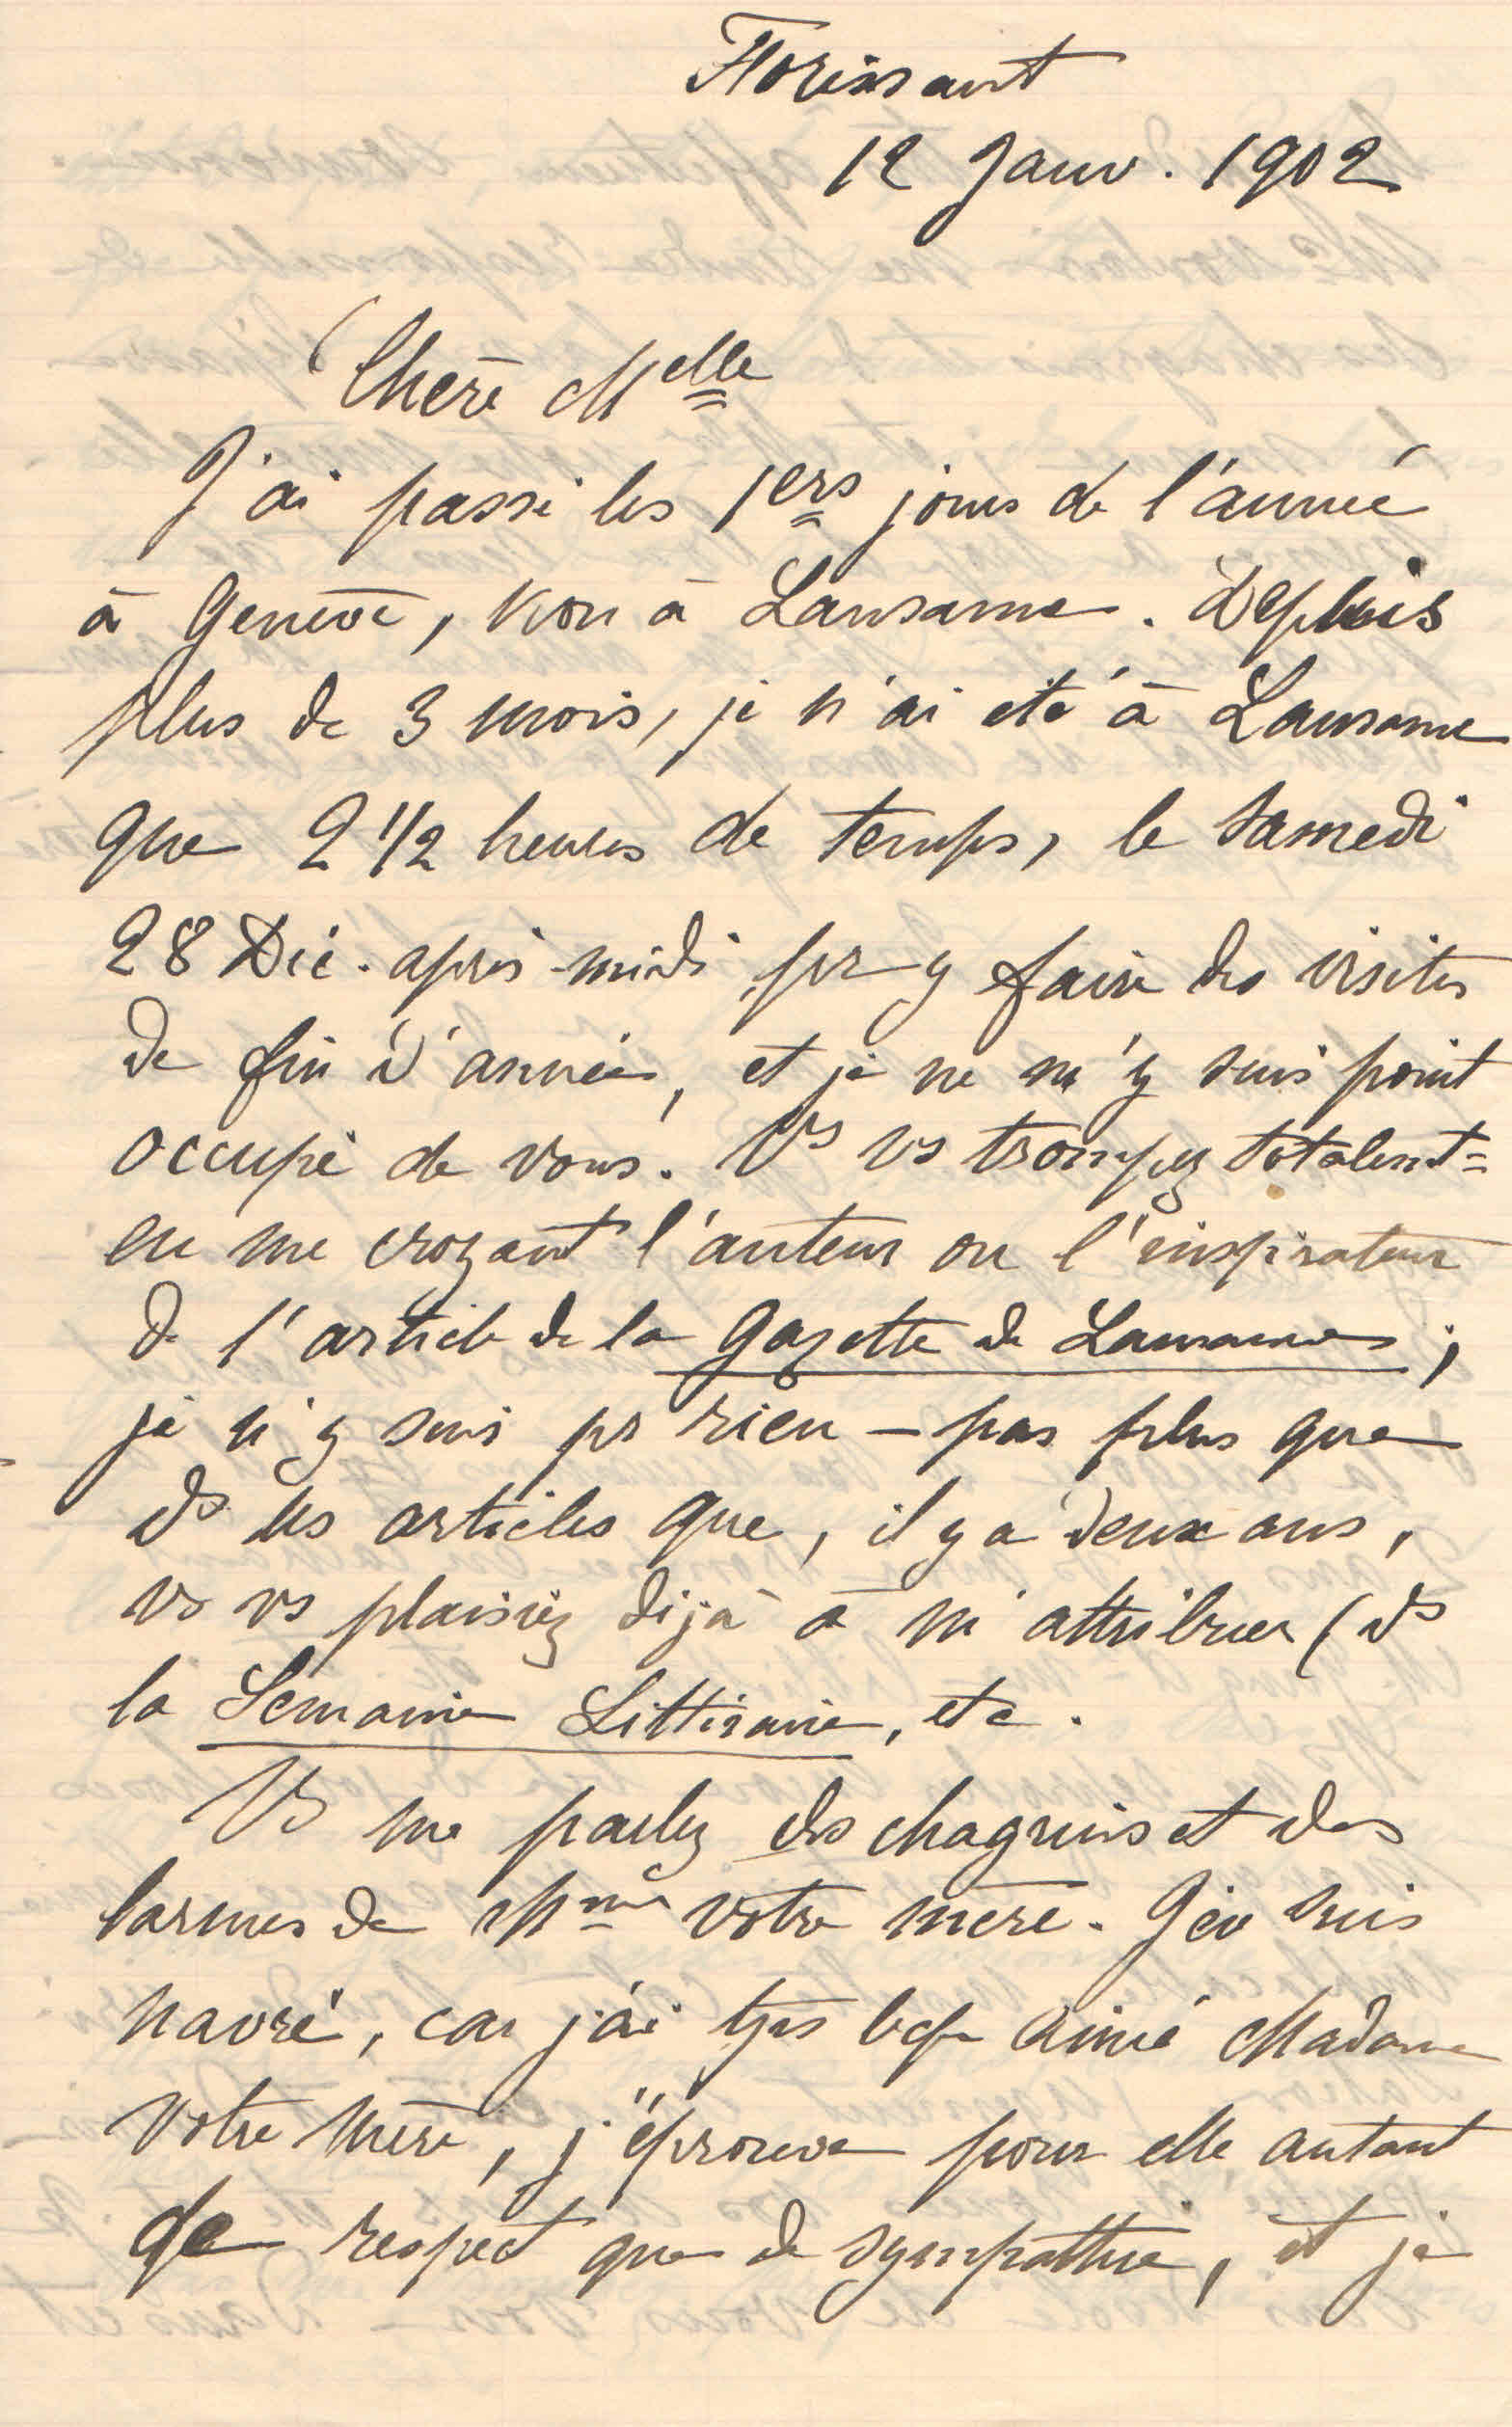 Florissant
12 Janv. 1902
Chère Melle
J'ai passé les 1ers jours de l'année
à Genève, non à Lausanne. Depuis
plus de 3 mois, je n'ai été à Lausanne
que 2 1/2 heures de temps, le samedi
28 Déc. après-midi pr y faire des visites
de fin d'année, et je ne m'y suis point
occupé de vous. Vs vs trompez totalemt
en me croyant l'auteur ou l'inspirateur
de l'article de la Gazette de Lausanne ;
je n'y suis pr rien – pas plus que
ds les articles que, il y a deux ans,
vs vs plaisiez déjà à m'attribuer (ds
la Semaine Littéraire, etc.
Vs me parlez des chagrins et des
larmes de Mme votre mère. J'en suis
navré, car j'ai tjrs bcp aimé Madame
votre mère, j'éprouve pour elle autant
de respect que de sympathie, et je